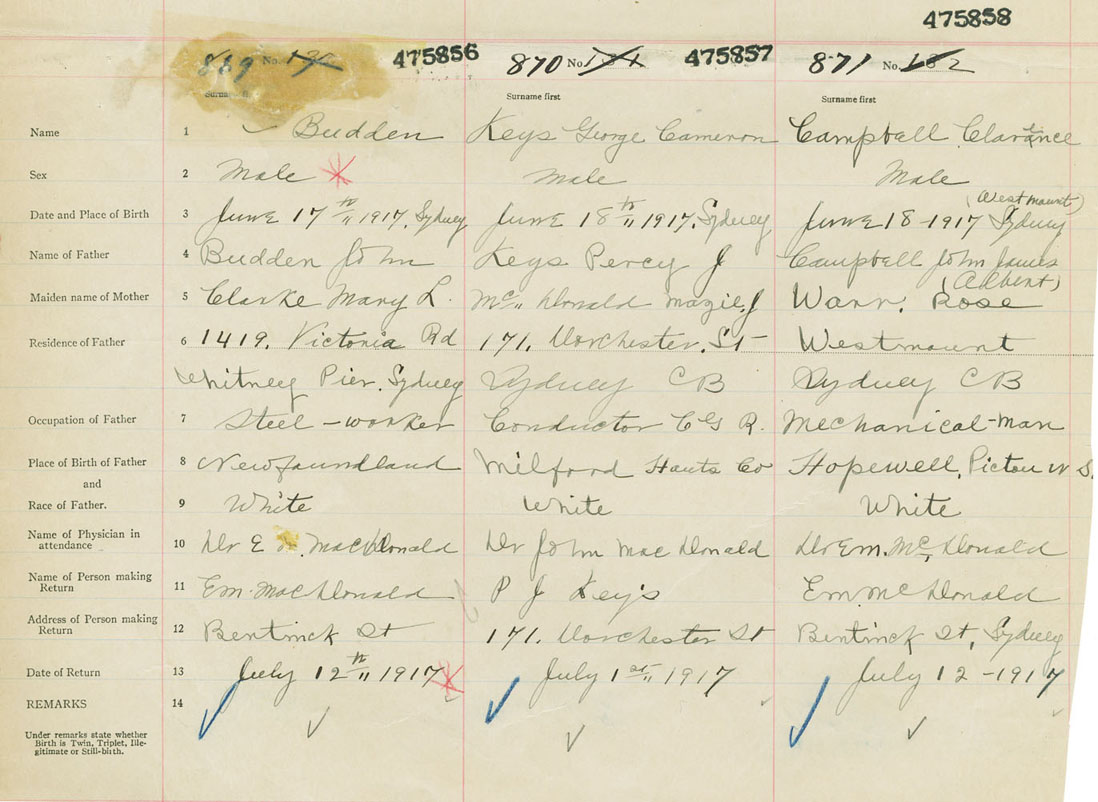 475858
889 No. 475856 870 No 131 475857 871 No. 132
Surname first Surname first
Name 1 Budden Keys George Cameron Campbell Clarence
Sex 2 Male Male Male
(Westmount)
Date and Place of Birth 3 June 17th 1917, Sydney June 18th 1917, Sydney June 18-1917 Sydney
Name of Father 4 Budden John Keys Percy J Campbell John James
(Albert)
Maiden name of Mother 5 Clarke Mary L. Mc Donald Magie J Warr, Rose
Residence of Father 6 1419, Victoria Rd 171, Dorchester, St Westmount
Whitney Pier, Sydney Sydney CB Sydney CB
Occupation of Father 7 Steel-worker Conductor C G R. Mechanical-man
Place of Birth of Father 8 Newfoundland Milford Hants Co Hopewell, Pictou N S.
and
Race of Father. 9 White White White
Name of Physician in
attendance 10 Dr E MacDonald Dr John MacDonald Dr E M. Mc Donald
Name of Person making
Return 11 E M. MacDonald P J Keys E M. Mc Donald
Address of Person making
Return 12 Bentinck St 171, Dorchester St Bentinck St, Sydney
Date of Return 13 July 12th 1917 July 1st 1917 July 12-1917
REMARKS 14
Under remarks state whether
Birth is Twin, Triplet, Ille-
gitimate or Still-birth.